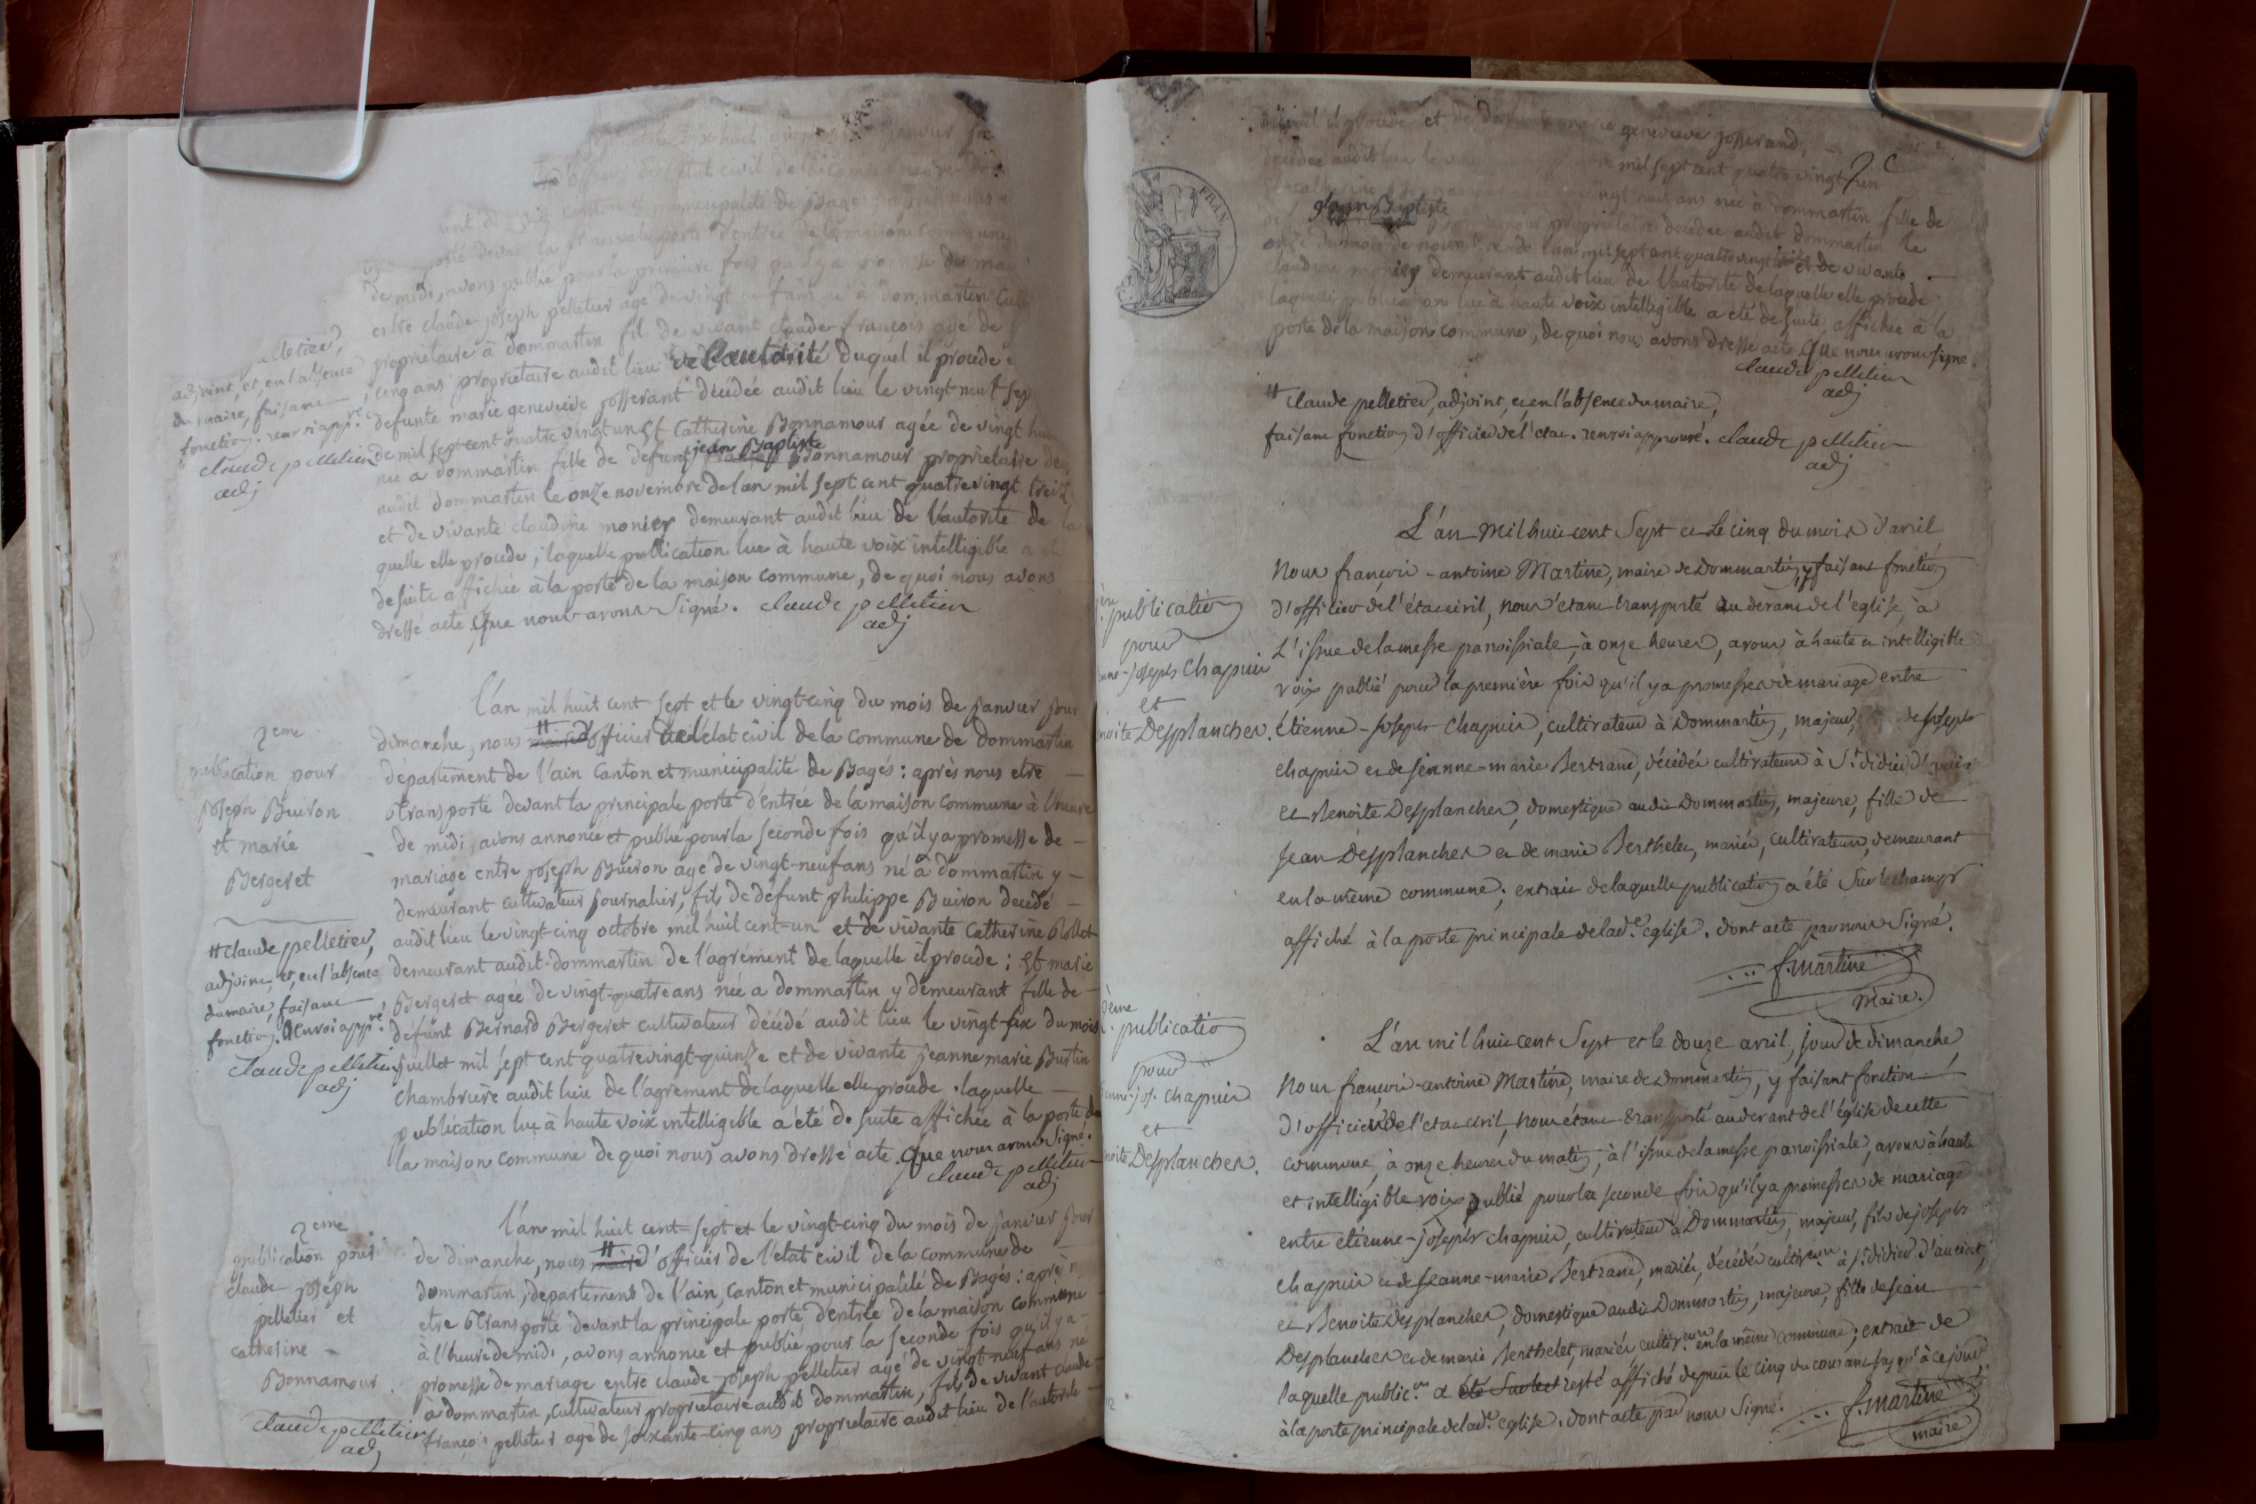 d'officier de l'état civil de la
canton & municipalité de Bagé
porté devant la principale porte d'entrée de la maison commune
de midi, avons publié pour la premiere fois qu'il y a promesse de ma
entre claude-joseph pelletier agé de vingt neuf ans né à dommartin cult
proprietaire à dommartin fil de vivant claude-françois agé de
cinq ans proprietaire audit lieu de l'autorité duquel il procede
defunte marie genevieve josserant décédée audit lieu le vingt-neuf sep
de mil sept cent quatre vingt un Et Catherine Bonnamour agée de vingt hui
née a dommartin fille de defunt jean Baptiste Bonnamour proprietaire de
audit dommartin le onze novembre de lan mil sept cent quatre vingt treiz
et de vivante claudine monier demeurant audit lieu de l'autorité de la
quelle elle procede; laquelle publication lue à haute voix intelligible a
de suite affichée à la porte de la maison commune, de quoi nous avons
dressé acte Que nous avons signé. claude pelletier
adj
pelletier,
adjoint, et, en l'absence
du maire, faisant
fonction. renvoi app.vé
claude pelletier
adj
2eme
publication pour
Joseph Buiron
et marie
Bergeret
l'an mil huit cent sept et le vingt-cinq du mois de janvier jour
dimanche, nous # maire d'officier de l'état civil de la commune de dommartin
département de l'ain Canton et municipalité de Bagés: après nous etre
transporté devant la principale porte d'entrée de la maison commune à l'heure
de midi, avons annoncé et publié pour la seconde fois qu'il y a promesse de
mariage entre joseph Buiron agé de vingt-neuf ans né à dommartin y
demeurant cultivateur journalier, fils de defunt philippe Buiron décédé
audit lieu le vingt-cinq octobre mil huit cent-un et de vivante Catherine Rollet
demeurant audit dommartin de l'agrément de laquelle il procede; Et marie
Bergeret agée de vingt-quatre ans née a dommartin y demeurant fille de
defunt Bernard Bergeret cultivateur décédé audit lieu le vingt-six du mois
juillet mil sept cent quatre vingt-quinze et de vivante jeanne marie Bustin
chambrière audit lieu de l'agrement de laquelle elle procede. laquelle
publication lue à haute voix intelligible a été de suite affichée à la porte de
la maison commune de quoi nous avons dressé acte. Que nous avons signé.
claude pelletier
adj
# claude pelletier,
adjoint, et, en l'absence
du maire, faisant
fonction. Renvoi app.vé
claude pelletier
adj
2eme
publication pour
claude joseph
pelletier et
catherine
Bonnamour
claude pelletier
adj
l'an mil huit cent-sept et le vingt-cinq du mois de janvier jour
de dimanche, nous # maire d'officier de l'état civil de la commune de
dommartin, departement de l'ain, canton et municipalité de Bagés: après n
etre transporté devant la principale porte d'entrée de la maison commune
à l'heure de midi, avons annoncé et publié pour la seconde fois qu'il y a
promesse de mariage entre claude-joseph pelletier agé de vingt-neuf ans né
à dommartin, cultivateur proprietaire audit dommartin, fils de vivant claude
françois pelletier agé de soixante-cinq ans proprietaire audit lieu de l'autorité
il procede et de genevieve josserand,
décédée audit lieu le mil sept cent quatre vingt un
catherine vingt huit ans née à dommartin fille de
jean Baptiste proprietaire décédé audit dommartin le
onze du mois de novembre de l'an mil sept cent quatre vingt et de vivante
claudine monier demeurant audit lieu de l'autorité de laquelle elle procede
laquelle publication lue à haute voix intelligible a été de suite affichée à la
porte de la maison commune, de quoi nous avons dressé acte. Que nous avons signé.
claude pelletier
adj
# claude pelletier, adjoint, et en l'absence du maire,
faisant fonction d'officier de l'état. renvoi approuvé. claude pelletier
adj
FRAN
publication
pour
joseph Chapuis
et
Desplanches.
L'an Mil huit cent Sept et Le cinq du mois d'avril
Nous françois-antoine Martine, maire de Dommartin, y faisant fonction
d'officier de l'état civil, nous étant transporté au devant de l'eglise, à
L'issue de la messe paroissiale, à onze heures, avons à haute et intelligible
voix publié pour la première fois qu'il y a promesse de mariage entre
Etienne-joseph Chapuis, cultivateur à Dommartin, majeur, de joseph
chapuis et de jeanne-marie Bertrand, décédés cultivateurs à St. didier d'
et Benoite Desplanches, domestique audit Dommartin, majeure, fille de
jean Desplanches et de marie Berthelet, mariés, cultivateurs, demeurant
en la même commune; extrait de laquelle publication a été Sur le champs
affiché à la porte principale de lad.e eglise. dont acte par nous Signé.
f. martine
Maire.
publication
pour
jos. chapuis
et
Desplanches.
L'an mil huit cent Sept et le douze avril, jour de dimanche,
Nous françois-antoine Martine, maire de Dommartin, y faisant fonction
d'officier de l'état civil, nous étant transporté au devant de l'église de cette
commune, à onze heures du matin, à l'issue de la messe paroissiale, avons à haute
et intelligible voix publié pour la seconde fois qu'il y a promesse de mariage
entre etienne-joseph chapuis, cultivateur à Dommartin, majeur, fils de joseph
chapuis et de jeanne-marie Bertrand, mariés, décédés cultiv.urs à St. didier d'auciat,
et Benoite Desplanches, domestique audit Dommartin, majeure, fille de jean
Desplanches et de marie Berthelet, mariés cultiv.urs en la même commune; extrait de
laquelle public.on a été Sur le ch resté affiché depuis le cinq du courant jusqu'à ce jour
à la porte principale de lad.e eglise. dont acte par nous Signé.
f. martine
maire